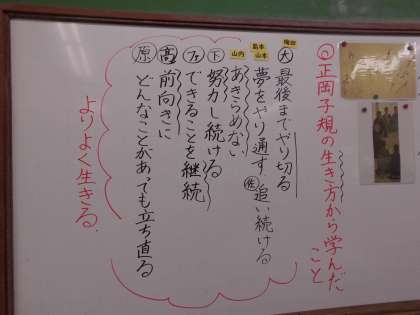 ◎正岡子規の生き方から学んだ
こと
梅田
大 最後までやり切る
島本
山本
夢をやり通す 佐 追い続ける
山内
あきらめない
下 努力し続ける
できることを継続
高 前向きに
原 どんなことがあっても立ち直る
よりよく生きる。